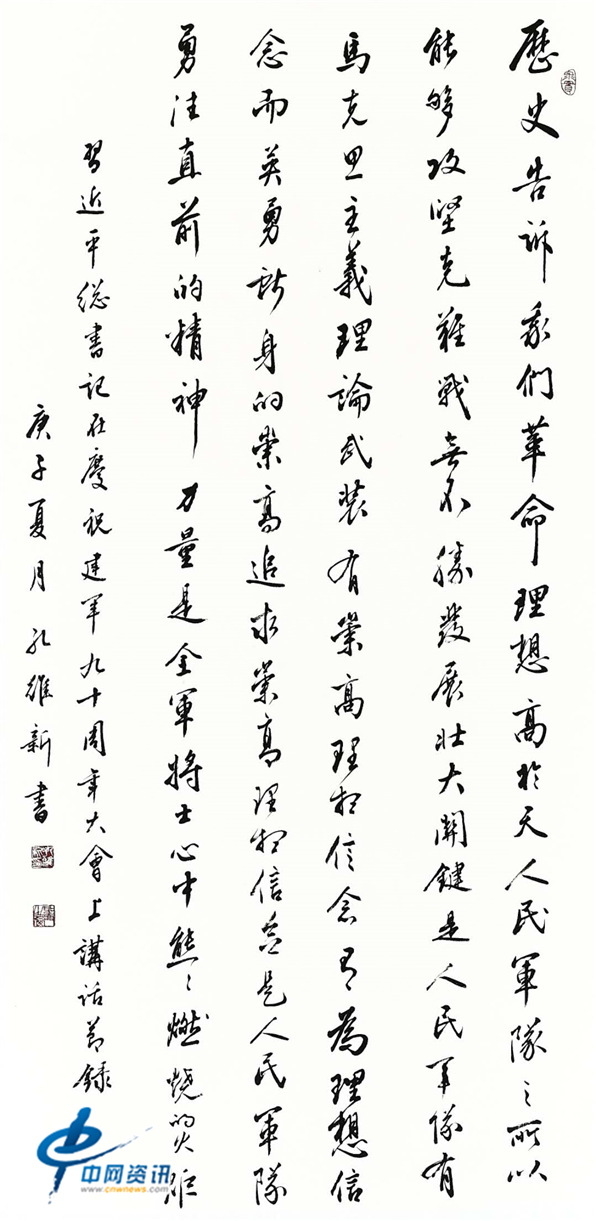 歷史告訴我們革命理想高於天人民軍隊之所以
能够攻堅克難戰無不勝發展壯大關鍵是人民军隊有
馬克思主義理論武裝有崇高理想信念有為理想信
念而英勇獻身的崇高追求崇高理想信念是人民軍隊
勇往直前的精神力量是全軍將士心中熊々燃燒的火炬
習近平總書記在慶祝建军九十周年大會上講話節録
庚子夏月孔維新書
中网资讯
www.cnwnews.com